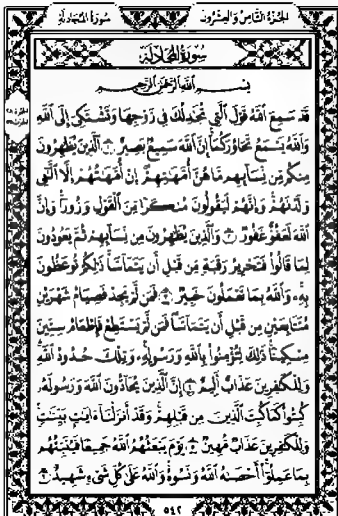 الجزء الثامن والعشرون سورة المجادلة
سورة المجادلة
بسم الله الرحمن الرحيم
قَدْ سَمِعَ اللَّهُ قَوْلَ الَّتِي تُجَادِلُكَ فِي زَوْجِهَا وَتَشْتَكِي إِلَى اللَّهِ
وَاللَّهُ يَسْمَعُ تَحَاوُرَكُمَا إِنَّ اللَّهَ سَمِيعٌ بَصِيرٌ ١ الَّذِينَ يُظَاهِرُونَ
مِنكُم مِّن نِّسَائِهِم مَّا هُنَّ أُمَّهَاتِهِمْ إِنْ أُمَّهَاتُهُمْ إِلَّا اللَّائِي
وَلَدْنَهُمْ وَإِنَّهُمْ لَيَقُولُونَ مُنكَرًا مِّنَ الْقَوْلِ وَزُورًا وَإِنَّ
اللَّهَ لَعَفُوٌّ غَفُورٌ ٢ وَالَّذِينَ يُظَاهِرُونَ مِن نِّسَائِهِمْ ثُمَّ يَعُودُونَ
لِمَا قَالُوا فَتَحْرِيرُ رَقَبَةٍ مِّن قَبْلِ أَن يَتَمَاسَّا ذَلِكُمْ تُوعَظُونَ
بِهِ وَاللَّهُ بِمَا تَعْمَلُونَ خَبِيرٌ ٣ فَمَن لَّمْ يَجِدْ فَصِيَامُ شَهْرَيْنِ
مُتَتَابِعَيْنِ مِن قَبْلِ أَن يَتَمَاسَّا فَمَن لَّمْ يَسْتَطِعْ فَإِطْعَامُ سِتِّينَ
مِسْكِينًا ذَلِكَ لِتُؤْمِنُوا بِاللَّهِ وَرَسُولِهِ وَتِلْكَ حُدُودُ اللَّهِ
وَلِلْكَافِرِينَ عَذَابٌ أَلِيمٌ ٤ إِنَّ الَّذِينَ يُحَادُّونَ اللَّهَ وَرَسُولَهُ
كُبِتُوا كَمَا كُبِتَ الَّذِينَ مِن قَبْلِهِمْ وَقَدْ أَنزَلْنَا آيَاتٍ بَيِّنَاتٍ
وَلِلْكَافِرِينَ عَذَابٌ مُّهِينٌ ٥ يَوْمَ يَبْعَثُهُمُ اللَّهُ جَمِيعًا فَيُنَبِّئُهُم
بِمَا عَمِلُوا أَحْصَاهُ اللَّهُ وَنَسُوهُ وَاللَّهُ عَلَى كُلِّ شَيْءٍ شَهِيدٌ ٦
٥٤٢